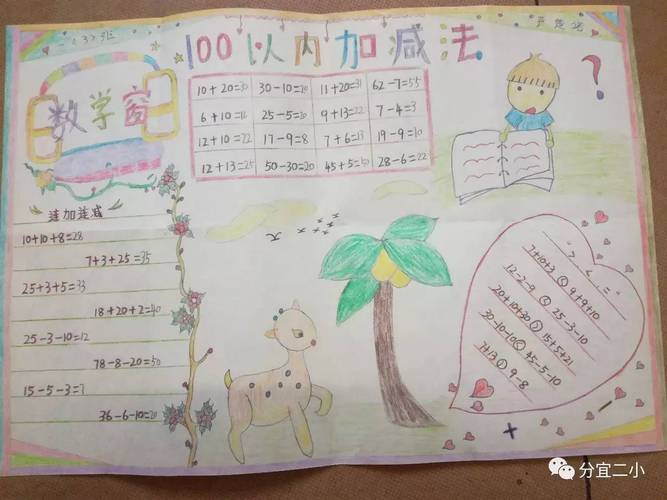 一(3)班
100以内加减法
数学窗
10+20=30 30-10=20 11+20=31 62-7=55
6+10=16 25-5=20 9+13=22 7-4=3
12+10=22 17-9=8 7+6=13 19-9=10
12+13=25 50-30=20 45+5=50 28-6=22
连加连减
10+10+8=28
7+3+25=35
25+3+5=33
18+20+2=40
25-3-10=12
78-8-20=50
15-5-3=7
36-6-10=20
?
">" "<" "="
7+10+3 < 9+9+10
12-2-9 < 25-3-10
20+10+30 > 15+5+21
30-10-10 < 45-5-10
7+13 > 9-8
+ -
分宜二小